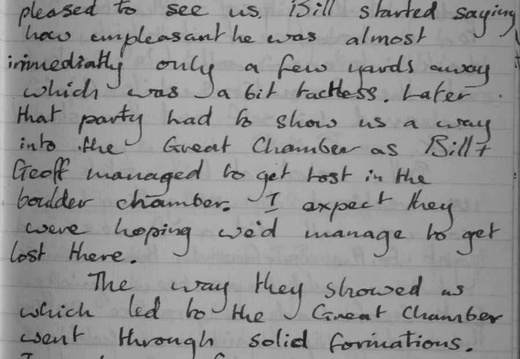 pleased to see us. Bill started saying
how unpleasant he was almost
immediatly only a few yards away
which was a bit tactless. Later
that party had to show us a way
into the Great Chamber as Bill +
Geoff managed to get lost in the
boulder chamber. I expect they
were hoping we'd manage to get
lost there.
The way they showed us
which led to the Great Chamber
went through solid formations.